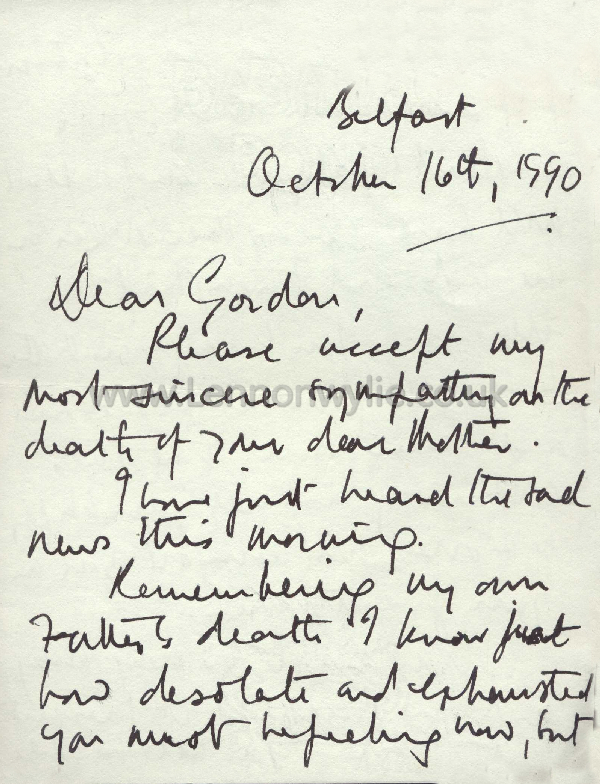 Belfast
October 16th, 1990
Dear Gordon,
Please accept my
most sincere sympathy on the
www.Lennonwylie.co.uk
death of your dear Mother.
I have just heard the sad
news this morning.
Remembering my own
Father's death I know just
how desolate and exhausted
you must be feeling now, but